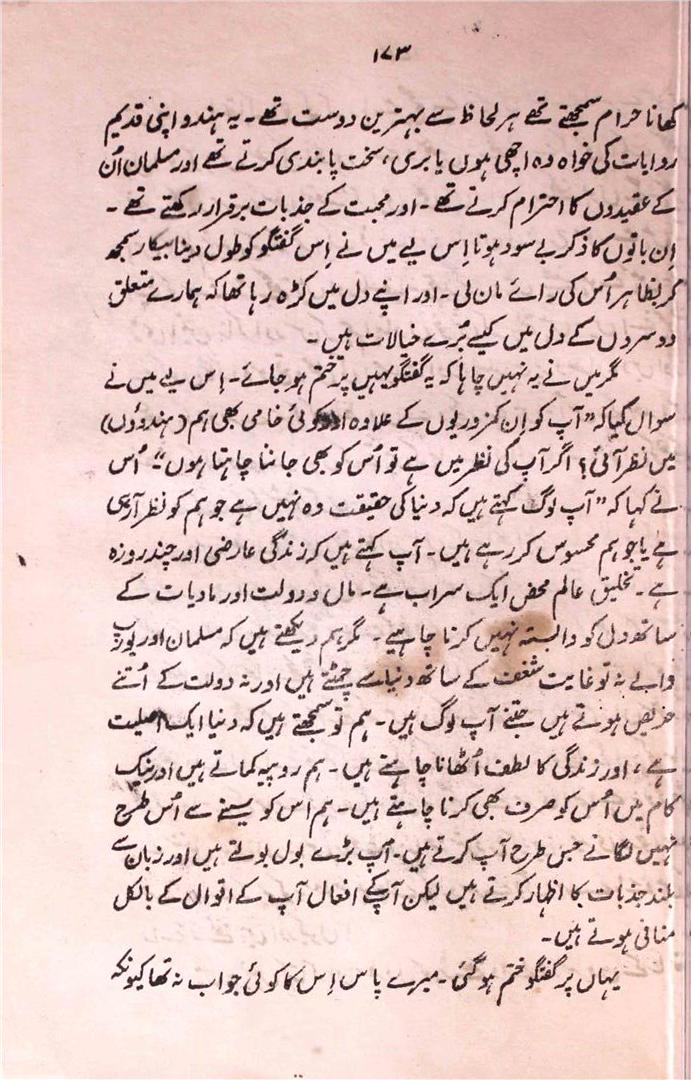 ۱۷۳
کھانا حرام سمجھتے تھے ہر لحاظ سے بہترین دوست تھے۔ یہ ہندو اپنی قدیم
روایات کی خواہ وہ اچھی ہوں یا بری، سخت پابندی کرتے تھے اور مسلمان اُن
کے عقیدوں کا احترام کرتے تھے۔ اور محبت کے جذبات برقرار رکھتے تھے۔
اِن باتوں کا ذکر بے سود ہوتا اِس لیے میں نے اِس گفتگو کو طول دینا بیکار سمجھ
کر بظاہر اُس کی رائے مان لی۔ اور اپنے دل میں کڑہ رہا تھا کہ ہمارے متعلق
دوسروں کے دل میں کیسے بُرے خیالات ہیں۔
مگر میں نے یہ نہیں چاہا کہ یہ گفتگو یہیں پر ختم ہو جائے۔ اِس لیے میں نے
سوال کیا کہ ”آپ کو اِن کمزوریوں کے علاوہ اور کوئی خامی بھی ہم (ہندوؤں)
میں نظر آئی؟ اگر آپ کی نظر میں ہے تو اُس کو بھی جاننا چاہتا ہوں“ اُس
نے کہا کہ ”آپ لوگ کہتے ہیں کہ دنیا کی حقیقت وہ نہیں ہے جو ہم کو نظر آرہی
ہے یا جو ہم محسوس کر رہے ہیں۔ آپ کہتے ہیں کہ زندگی عارضی اور چند روزہ
ہے۔ تخلیق عالم محض ایک سراب ہے۔ مال و دولت اور مادیات کے
ساتھ دل کو وابستہ نہیں کرنا چاہیے۔ مگر ہم دیکھتے ہیں کہ مسلمان اور یورپ
والے نہ تو غایت شغف کے ساتھ دنیا سے چمٹتے ہیں اور نہ دولت کے اُتنے
حریص ہوتے ہیں جتنے آپ لوگ ہیں۔ ہم تو سمجھتے ہیں کہ دنیا ایک اصلیت
ہے، اور زندگی کا لطف اُٹھانا چاہتے ہیں۔ ہم روپیہ کماتے ہیں اور نیک
کام میں اُس کو صرف بھی کرنا چاہتے ہیں۔ ہم اس کو سینے سے اُس طرح
نہیں لگاتے جس طرح آپ کرتے ہیں۔ آپ بڑے بول بولتے ہیں اور زبان سے
بلند جذبات کا اظہار کرتے ہیں لیکن آپکے افعال آپ کے اقوال کے بالکل
منافی ہوتے ہیں۔
یہاں پر گفتگو ختم ہو گئی۔ میرے پاس اِس کا کوئی جواب نہ تھا کیونکہ